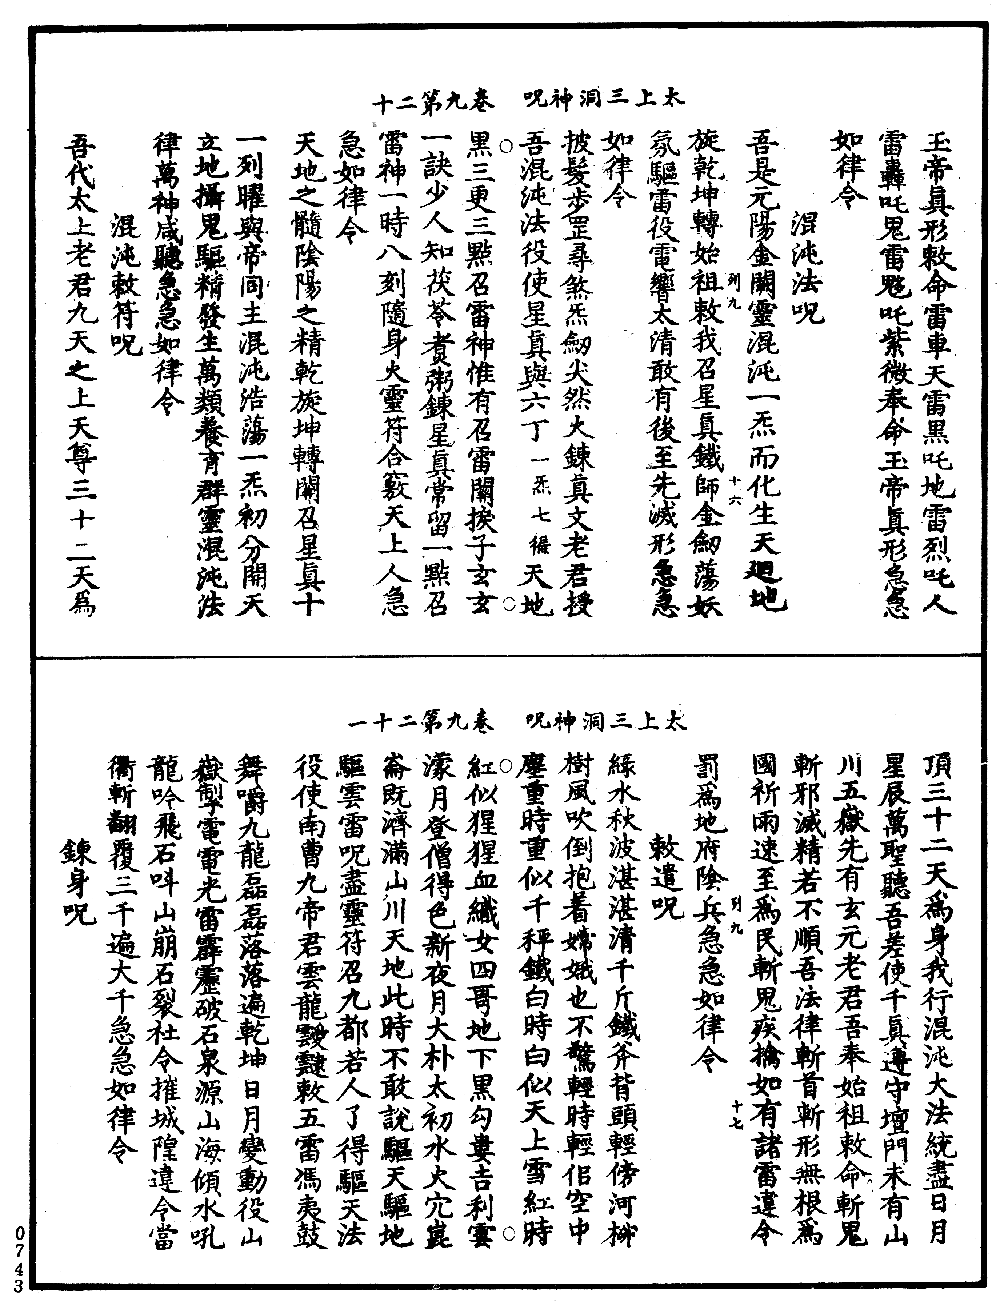 太上三洞神呪　卷九第二十
玉帝眞形敕命雷車天雷黑吒地雷烈吒人
雷轟吒鬼雷魒吒紫微奉命玉帝眞形急急
如律令
混沌法呪
吾是元陽金闕靈混沌一炁而化生天迴地
列九　十六
旋乾坤轉始祖敕我召星眞鐵師金劒蕩妖
氛驅雷役電響太清敢有後至先滅形急急
如律令
披髮步罡尋煞炁劒尖然火鍊眞文老君授
吾混沌法役使星眞與六丁一炁七徧天地
○黑三更三點召雷神惟有召雷關挨子玄玄○
一訣少人知茯苓煑粥鍊星眞常留一點召
雷神一時八刻隨身火靈符合竅天上人急
急如律令
天地之髓陰陽之精乾旋坤轉關召星眞十
一列曜與帝同主混沌浩蕩一炁初分開天
立地攝鬼驅精發生萬類養育群靈混沌法
律萬神咸聽急急如律令
混沌敕符呪
吾代太上老君九天之上天尊三十二天爲
太上三洞神呪　卷九第二十一
頂三十二天爲身我行混沌大法統盡日月
星辰萬聖聽吾差使千眞遵守壇門未有山
川五嶽先有玄元老君吾奉始祖敕命斬鬼
斬邪滅精若不順吾法律斬首斬形無根爲
國祈雨速至爲民斬鬼疾擒如有諸雷違令
列九　十七
罰爲地府陰兵急急如律令
敕遣呪
綠水秋波湛湛清千斤鐵斧背頭輕傍河柳
樹風吹倒抱着嫦娥也不驚輕時輕佀空中
塵重時重似千秤鐵白時白似天上雪紅時
○紅似猩猩血織女四哥地下黑勾婁吉利雲○
濛月登僧得色新夜月大朴太初水火穴崑
崙既濟滿山川天地此時不敢說驅天驅地
驅雲雷呪盡靈符召九都若人了得驅天法
役使南曹九帝君雲龍靉靆敕五雷馮夷鼓
舞嚼九龍磊磊落落遍乾坤日月變動役山
嶽掣電電光雷霹靂破石泉源山海傾水吼
龍吟飛石呌山崩石裂社令摧城隍違令當
衢斬翻覆三千遍大千急急如律令
鍊身呪
0743